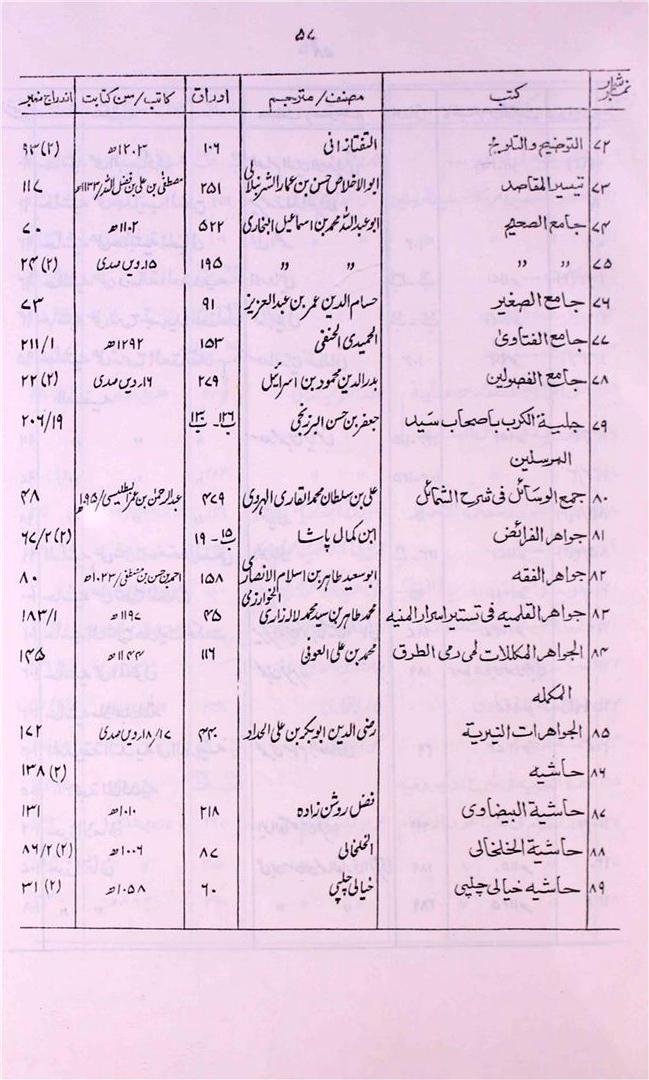 ۵۷
شمار نمبر | کتب | مصنف/مترجم | اوراق | کاتب/سن کتابت | اندراج نمبر
۷۲ | التوضیح والتلویح | التفتازانی | ۱۰۶ | ۱۲۰۳ھ | ۹۳(۲)
۷۳ | تیسیر المقاصد | ابوالاخلاص حسن بن عمار الشرنبلالی | ۲۵۱ | مصطفی بن علی بن فضل اللہ/۱۱۳۳ھ | ۱۱۷
۷۴ | جامع الصحیح | ابوعبداللہ محمد بن اسماعیل البخاری | ۵۲۲ | ۱۱۰۲ھ | ۷۰
۷۵ | " " | " " | ۱۹۵ | ۱۵ویں صدی | ۲۴(۲)
۷۶ | جامع الصغیر | حسام الدین عمر بن عبدالعزیز | ۹۱ | | ۷۳
۷۷ | جامع الفتاوی | الحمیدی الحنفی | ۱۵۳ | ۱۲۹۲ھ | ۲۱۱/۱
۷۸ | جامع الفصولین | بدرالدین محمود بن اسرائیل | ۲۷۹ | ۱۶ویں صدی | ۲۲(۲)
۷۹ | جلیة الکرب باصحاب سَید | جعفر بن حسن البرزنجی | ۱۲۶ب-۱۳۰ب | | ۲۰۶/۱۹
المرسلین
۸۰ | جمع الوسائل فی شرح الشمائل | علی بن سلطان محمد القاری الہروی | ۴۷۹ | عبدالرحمن بن | ۴۸
۸۱ | جواهر الفرائض | ابن کمال پاشا | ۱۵ب-۱۹ | | ۶۷/۲(۲)
۸۲ | جواهر الفقه | ابوسعید طاہر بن اسلام الانصاری الخوارزمی | ۱۵۸ | احمد بن حسن بن مصطفی/۱۰۲۳ھ | ۸۰
۸۳ | جواهر القلمیه فی تستیر اسرار المنیه | محمد طاہر بن سید محمد لالہ زاری | ۴۵ | ۱۱۹۷ھ | ۱۸۳/۱
۸۴ | الجواهر المکللات لمی دمی الطرق | محمد بن علی العوفی | ۱۱۶ | ۱۱۴۴ھ | ۱۴۵
المکمله
۸۵ | الجواهرات النیریة | رضی الدین ابوبکر بن علی الحداد | ۴۴۰ | ۱۷/۱۸ویں صدی | ۱۷۲
۸۶ | حاشیه | | | | ۱۳۸(۲)
۸۷ | حاشیة البیضاوی | فضل روشن زادہ | ۲۱۸ | ۱۰۱۰ھ | ۱۳۱
۸۸ | حاشیة الخلخالی | الخلخالی | ۸۷ | ۱۰۰۶ھ | ۸۶/۲(۲)
۸۹ | حاشیه خیالی چلپی | خیالی چلپی | ۶۰ | ۱۰۵۸ھ | ۳۱(۲)